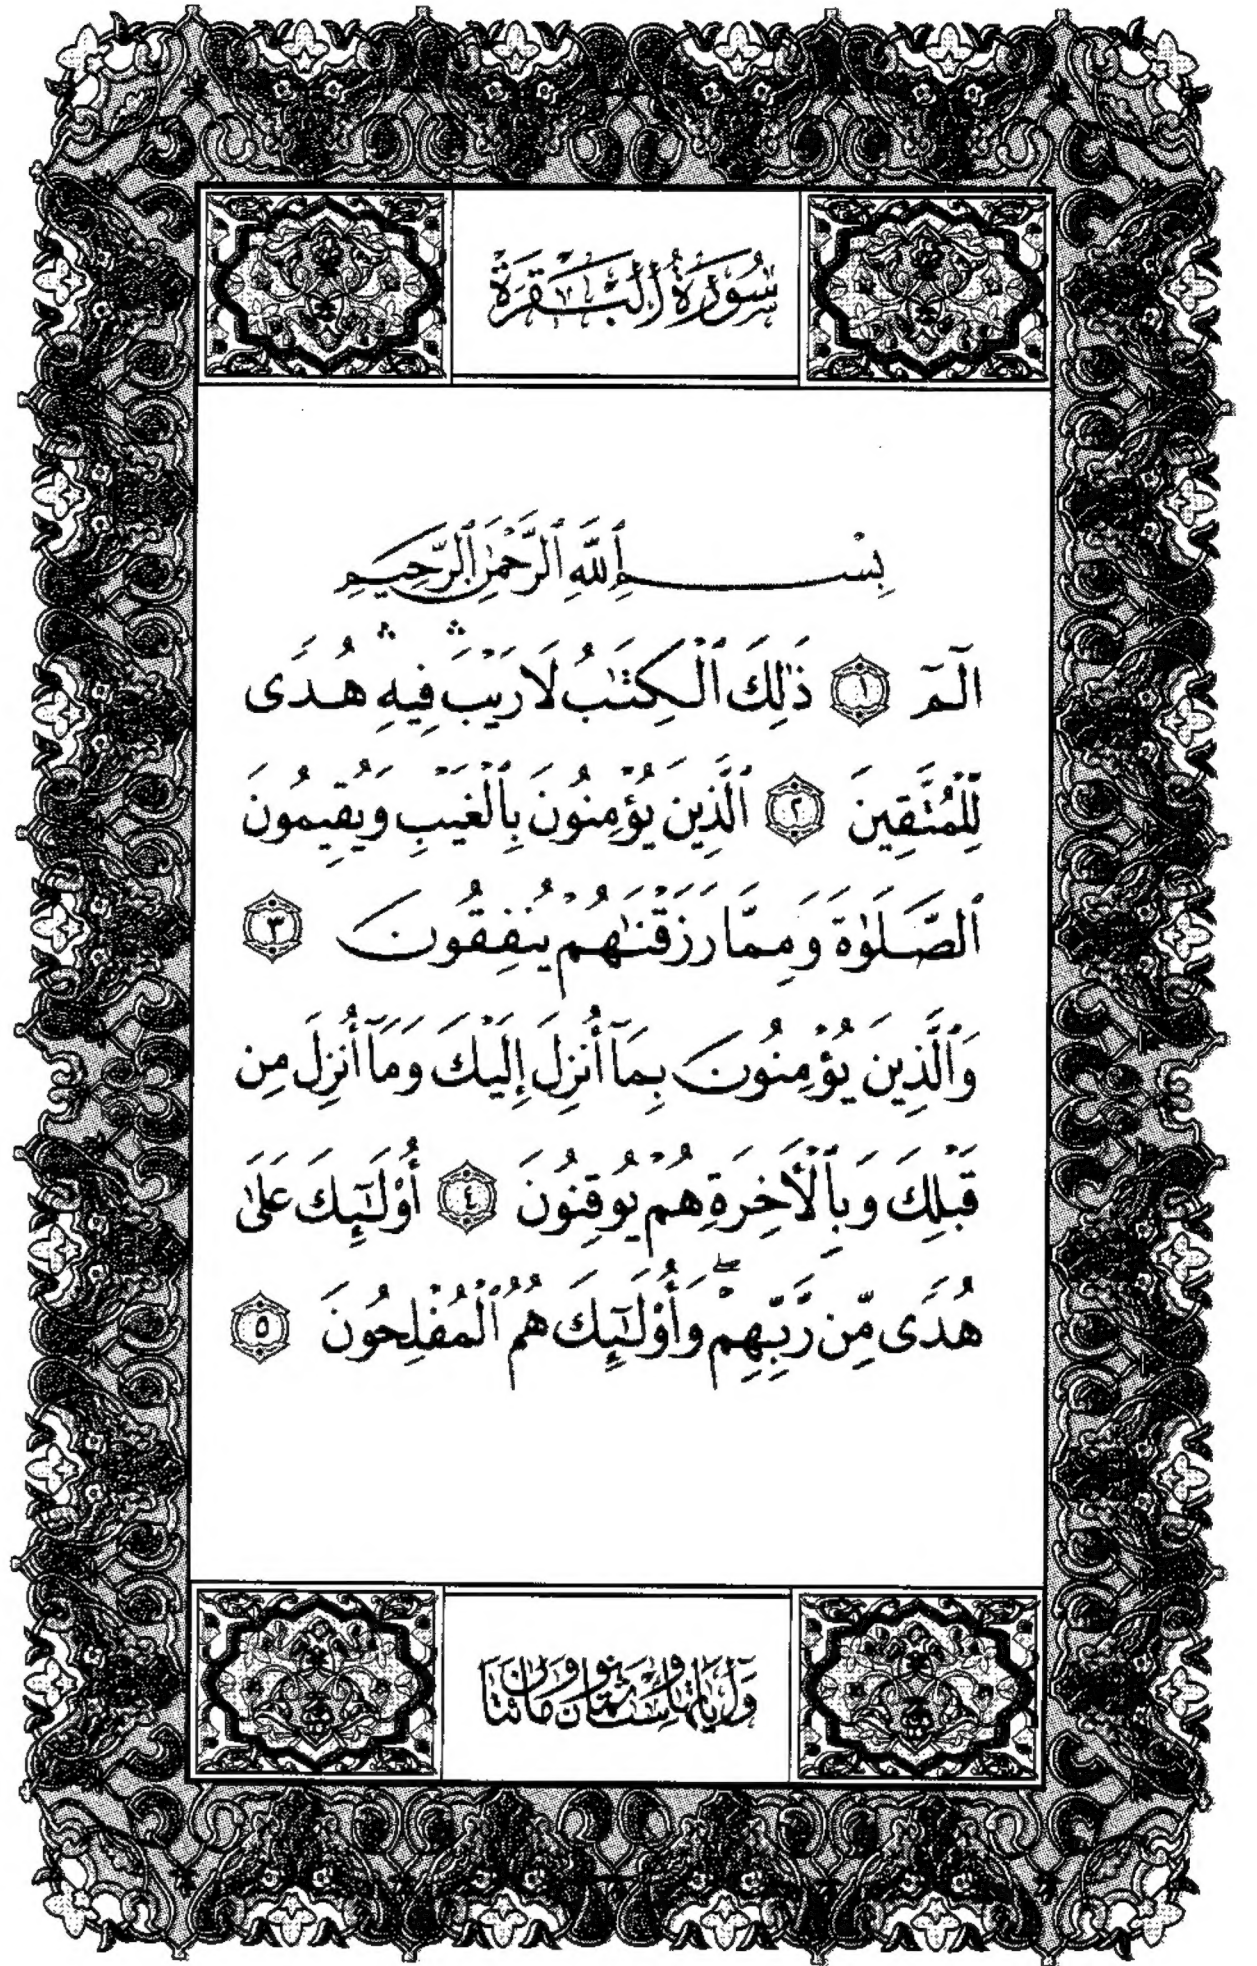 سُورَةُ ٱلْبَقَرَةِ
بِسْمِ ٱللَّهِ ٱلرَّحْمَٰنِ ٱلرَّحِيمِ
الٓمٓ ۝١ ذَٰلِكَ ٱلْكِتَٰبُ لَا رَيْبَ ۛ فِيهِ ۛ هُدًى
لِّلْمُتَّقِينَ ۝٢ ٱلَّذِينَ يُؤْمِنُونَ بِٱلْغَيْبِ وَيُقِيمُونَ
ٱلصَّلَوٰةَ وَمِمَّا رَزَقْنَٰهُمْ يُنفِقُونَ ۝٣
وَٱلَّذِينَ يُؤْمِنُونَ بِمَآ أُنزِلَ إِلَيْكَ وَمَآ أُنزِلَ مِن
قَبْلِكَ وَبِٱلْأَخِرَةِ هُمْ يُوقِنُونَ ۝٤ أُوْلَٰٓئِكَ عَلَىٰ
هُدًى مِّن رَّبِّهِمْ ۖ وَأُوْلَٰٓئِكَ هُمُ ٱلْمُفْلِحُونَ ۝٥
وَآيَاتُهَا سِتٌّ وَثَمَانُونَ وَمِائَتَانِ